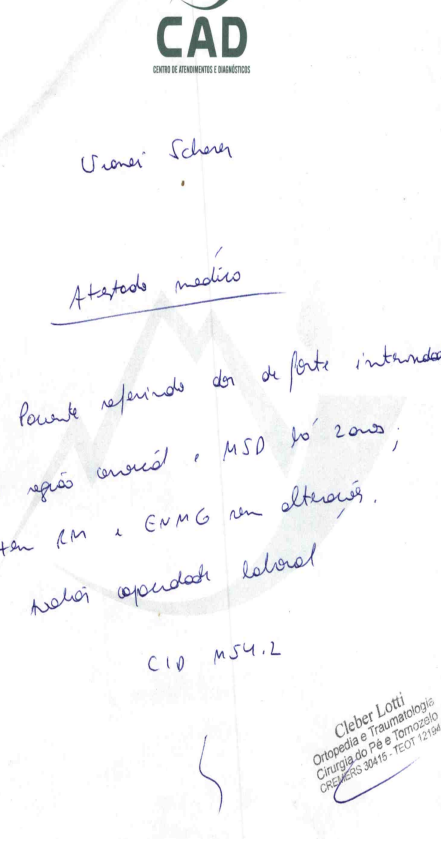 CAD
CENTRO DE ATENDIMENTOS E DIAGNÓSTICOS
Vianei Scherer
Atestado médico
Paciente referindo dor de forte intensidade
região cervical e MSD há 2 anos;
tem RM e ENMG sem alterações.
Avaliar capacidade laboral
CID M54.2
Cleber Lotti
Ortopedia e Traumatologia
Cirurgia do Pé e Tornozelo
CREMERS 30415 - TEOT 12194